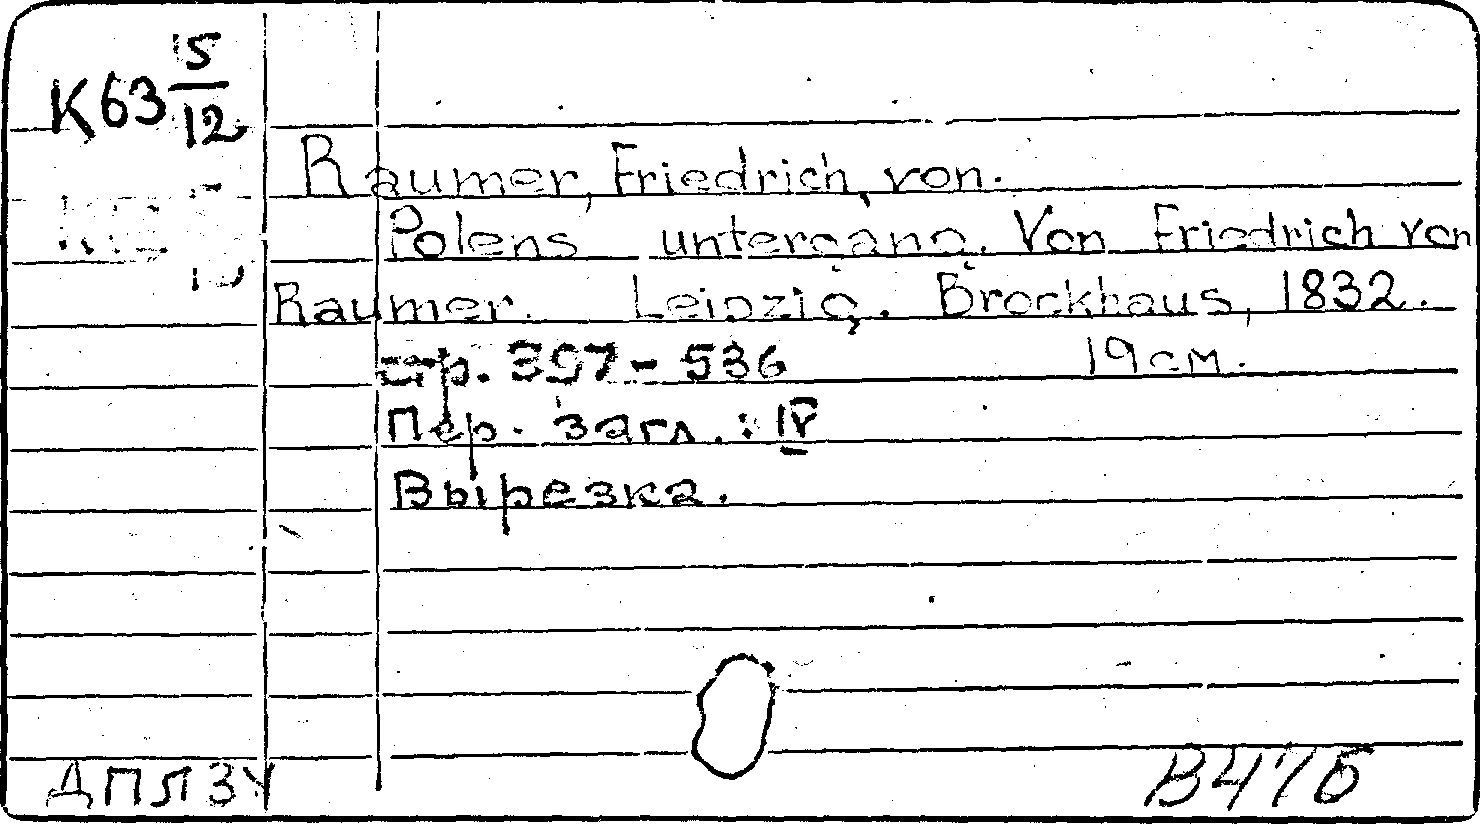 К63 5/12
Raumer, Friedrich, von.
Polens untergang. Von Friedrich von
Raumer. Leipzig. Brockhaus, 1832.
стр. 397-536 19 см.
Пер. загл.: IV
Вырезка.
ДПЛ ЗУ
В476